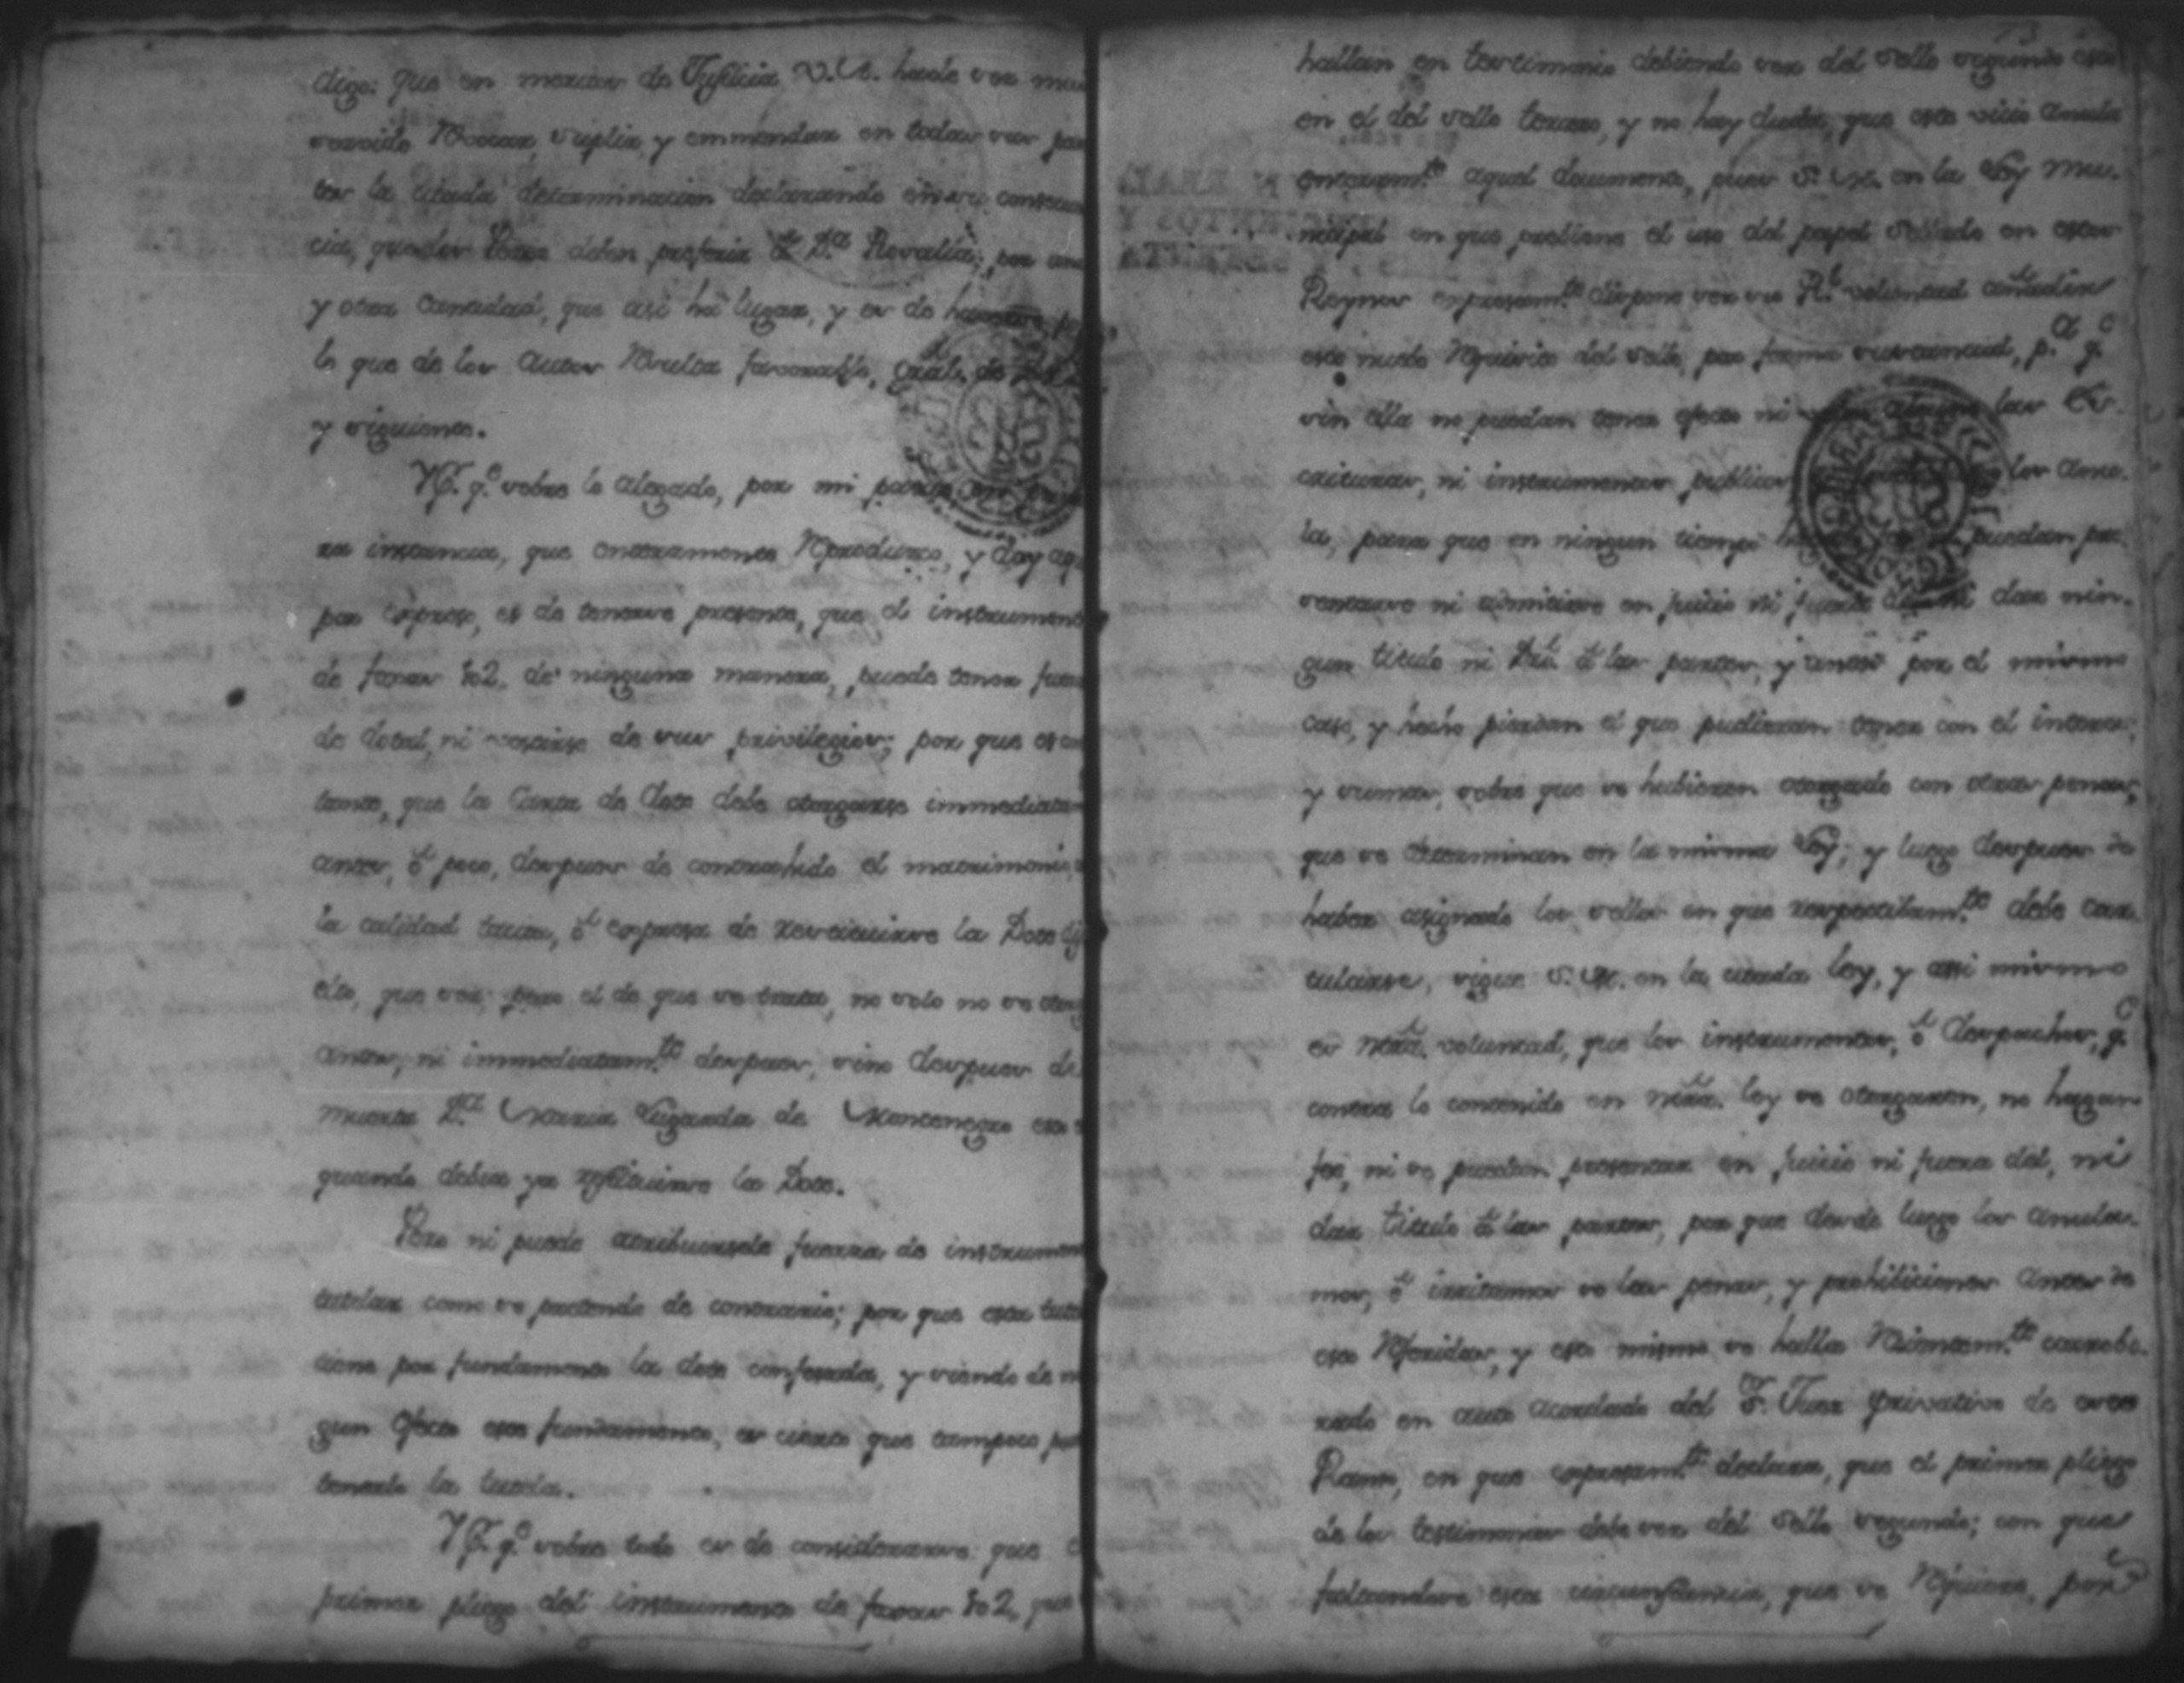 digo: que en meritos de Justicia V.A. ha de ser mui
servido Revocar, suplir, y emmendar en todas sus par
tes la citada determinacion declarando en su consecuen
cia, quedar partes deben preferir à D.ª Rosalía; por una
y otra Cantidad, que asi há lugar, y es de hacerse, por
lo que de los Autos Resulta favorable, grâl. de
y siguiente.
Y P. q.e sobre lo alegado, por mi parte en
ra instancia, que enteramente Reproduzco, y doy aqui
por Expreso, es de tenerse presente, que el instrumento
de foxas 102. de ninguna manera, puede tener fuer
de dotal, ni gozarse de sus privilegios; por que es
tante, que la Carta de dote debe otorgarse immediatam
antes, ó poco, despues de contrahido el matrimonio,
la calidad tacita, ó expresa de restituirse la Dote
elto, que sea; pero el de que se trata, no solo no se otorg
antes, ni immediatam.te despues, sino despues de
muerta D.ª Maria Lugarda de Montenegro esto
quando debia ya restituirse la Dote.
Pero ni puede atribuirsele fuerza de instrumen
tutelar como se pretende de contrario; por que esta tute
tiene por fundamento la dote confesada, y siendo de n
gun efecto este fundamento, es cierto que tampoco
tenerle la tutela.
Y P. q.e sobre todo es de considerarse que e
primer pliego del instrumento de foxas 102, que
73
hallan en testimonio debiendo ser del sello segundo esta
en el del sello tercero, y no hay duda, que este vicio anula
enteram.te aquel documento, pues S. M. en la Ley Mu-
nicipal en que previene el uso del papel Sellado en estos
Reynos expresam.te dispone ser su R.l voluntad añadir
este nuevo Requisito del sello, por forma sustancial, p.a q.e
sin ella no puedan tener efecto ni valor alguno las Es-
crituras, ni instrumentos publicos los anu-
la, para que en ningun tiempo hagan puedan pre
sentarse ni admitirse en juicio ni fuera del, ni dar nin-
gun titulo ni Drô. á las partes, y antes por el mismo
caso, y hecho pierdan el que pudieran tener con el interes,
y sumas, sobre que se hubieren otorgado con otras penas,
que se determinan en la misma Ley; y luego despues de
haber asignado los sellos en que respectibam.te debe car-
tularse, sigue S. M. en la citada Ley, y assi mismo
es nrâ. voluntad, que los instrumentos, ó despachos, q.e
contra lo contenido en nrâ. ley se otorgaren, no hagan
fee, ni se puedan presentar en juicio ni fuera del, ni
dar titulo á las partes, por que desde luego los anula-
mos, é irritamos so las penas, y prohibiciones antes de
esta Referidas, y esto mismo se halla Recientem.te corrobo-
rado en auto acordado del S. Juez Privativo de este
Ramo, en que expresam.te declara, que el primer pliego
de los testimonios debe ser del Sello segundo; con que
faltandose esta circunstancia, que se Requiere, por